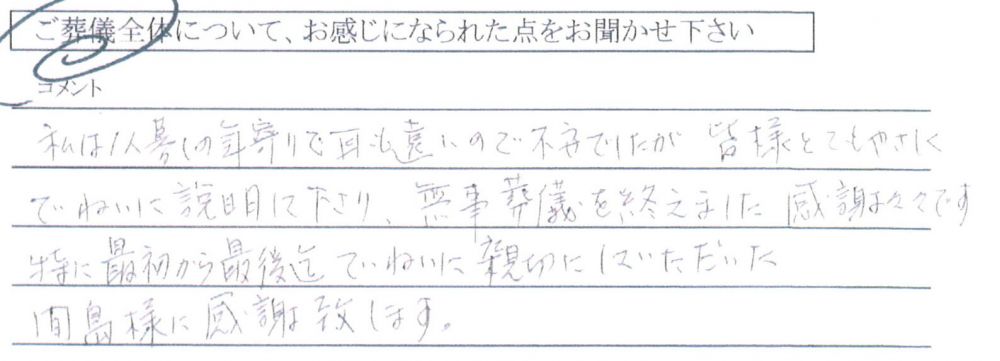 ご葬儀全体について、お感じになられた点をお聞かせ下さい
コメント
私は1人暮しの年寄りで耳も遠いので不安でしたが 皆様とてもやさしく
ていねいに説明して下さり、無事葬儀を終えました 感謝々々です
特に最初から最後迄 ていねいに親切にしていただいた
間島様に感謝致します。